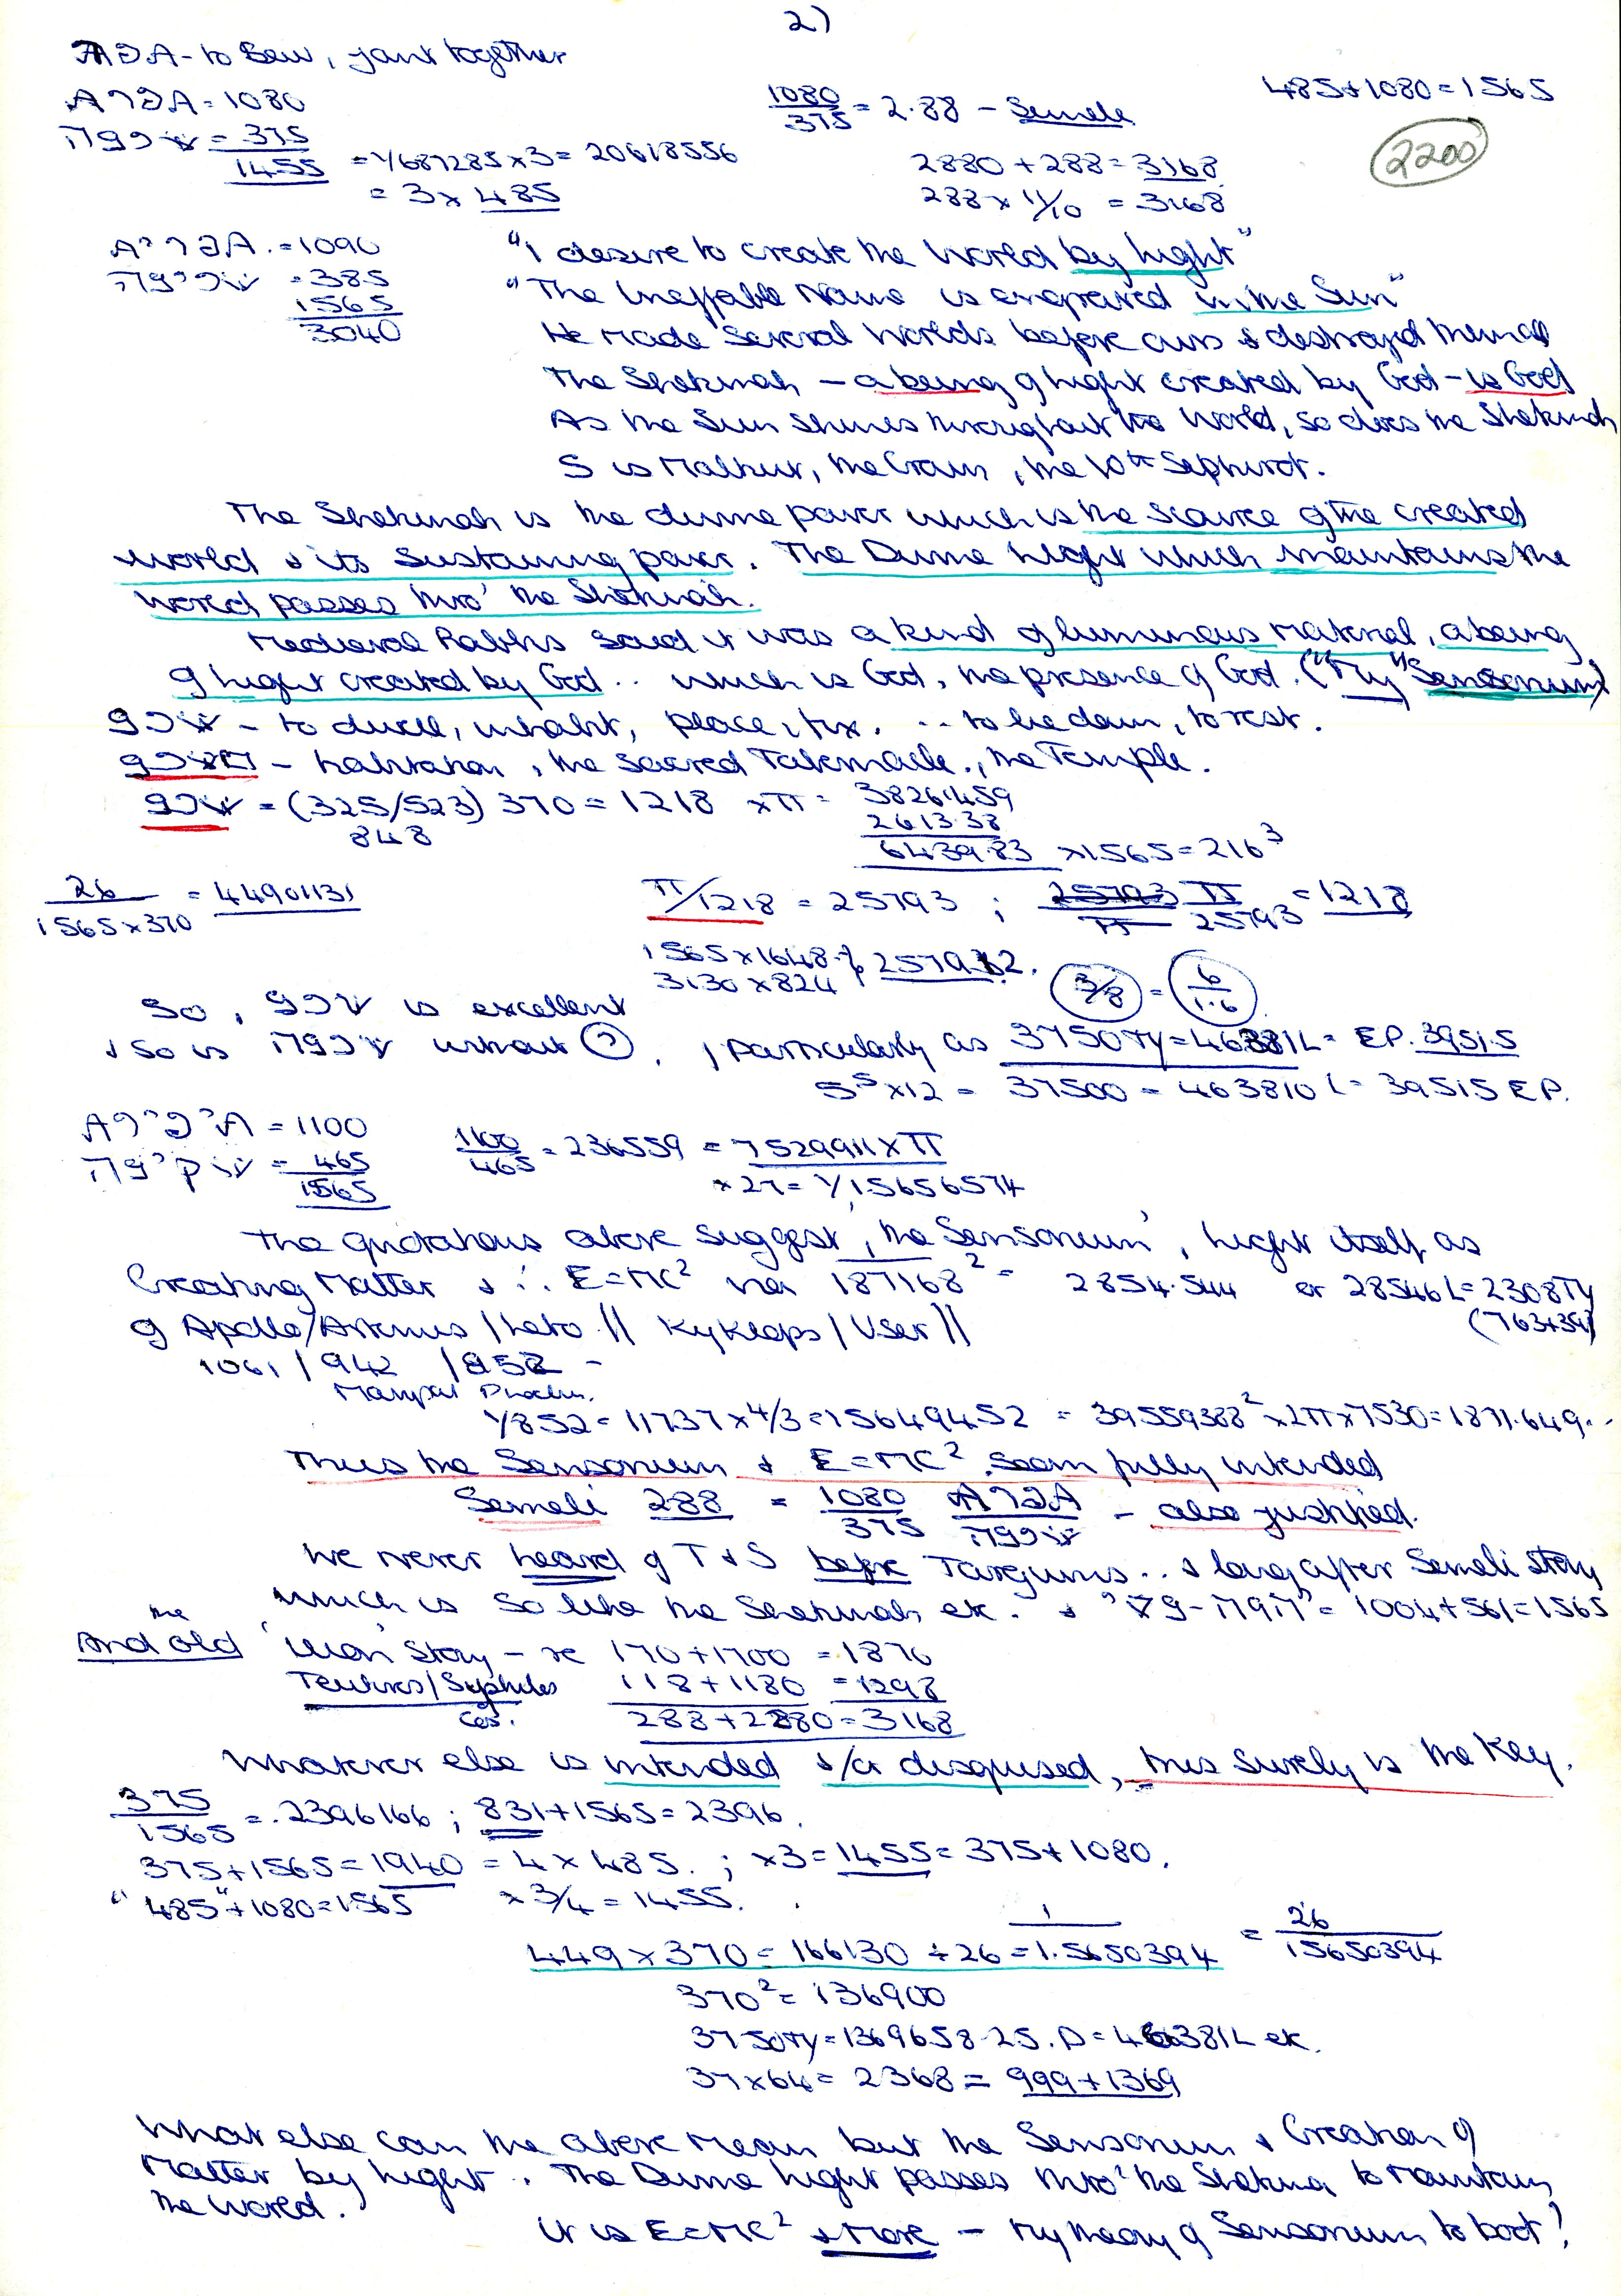 2)
- to Sew, joint together
= 1080
1080/375 = 2.88 - Semele
485+1080=1565
= 375
1455 = 1/687285 x 3 = 20618556
= 3 x 485
2880 + 288 = 3168
288 x 11/10 = 3168
2200
= 1090
= 385
1565
3040
"I desire to create the World by Light"
"The Ineffable Name is engraved in the Sun"
He made several Worlds before ours & destroyed them all
The Shekinah - a being of Light created by God - is God
As the Sun shines throughout the World, so does the Shekinah
S is Malkut, the Crown, the 10th Sephirot.
The Shekinah is the divine power which is the source of the created
world & its sustaining power. The Divine Light which maintains the
World passes thro' the Shekinah.
Medieval Rabbis said it was a kind of luminous material, a being
of Light created by God .. which is God, the presence of God. ("My" Sensorium)
- to dwell, inhabit, place, fix, .. to lie down, to rest.
- habitation, the sacred Tabernacle, the Temple.
= (325/523) 370 = 1218 xπ = 38261459
848
2613.38
6439.83 x1565 = 216³
26/1565x370 = 44901131
π/1218 = 25793 ; π/25793 = 1218
1565x1648
3130x824 } 257912.
3/8 = 6/1.6
So, שכן is excellent
& so is without , particularly as 3750Ty = 46381L = EP. 39515
5⁵x12 = 37500 = 463810 L = 39515 EP.
= 1100
1100/465 = 236559 = 7529911 x π
= 465
1565
x 27 = 1/15656574
The quotations above suggest 'the Sensorium', Light itself as
Creating Matter & ∴ E=MC² via 187168² = 2854.544 or 28546L = 2308Ty
(763+39)
of Apollo/Artemis/Leto // Kyklops/User //
1061 / 942 / 852 -
1/852 = 11737 x 4/3 = 15649452 = 39559388² x 2π x 7530 = 1871.649..
Thus the Sensorium & E=MC² seem fully intended
Semeli 288 = 1080/375 - also justified.
We never heard of T & S before Targums .. & long after Semeli story
which is so like the Shekinah etc. & = 1004+561=1565
And the old 'Man' story - re 170+1700 = 1870
118+1180 = 1298
288+2880=3168
Whatever else is intended &/or disguised, this surely is the Key.
375/1565 = .2396166 ; 831+1565=2396.
375+1565=1940 = 4 x 485. ; x3 = 1455 = 375+1080.
"485"+1080=1565 x 3/4 = 1455.
449 x 370 = 166130 ÷ 26 = 1/1.5650394 = 26/15650394
370² = 136900
3750Ty = 1369658.25.D = 46381L etc.
37x64 = 2368 = 999+1369
What else can the above mean but the Sensorium & Creation of
Matter by Light. The Divine Light passes thro' the Shekina to Maintain
the World.
It is E=MC² & More - My theory of Sensorium to boot!